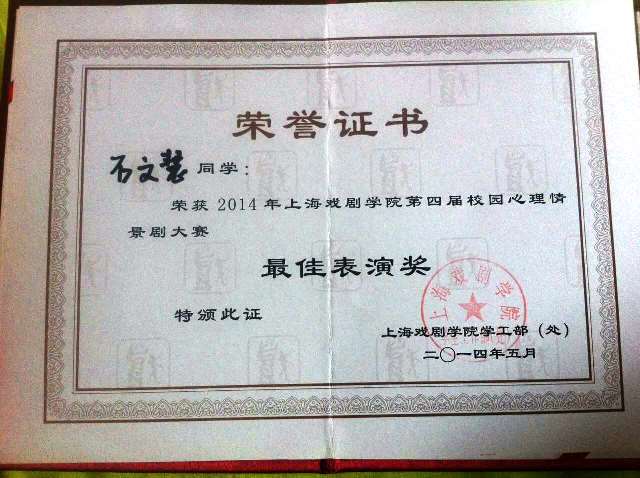 荣誉证书
石文慧 同学：
荣获 2014 年上海戏剧学院第四届校园心理情
景剧大赛
最佳表演奖
特颁此证
上海戏剧学院
上海戏剧学院学工部（处）
二〇一四年五月